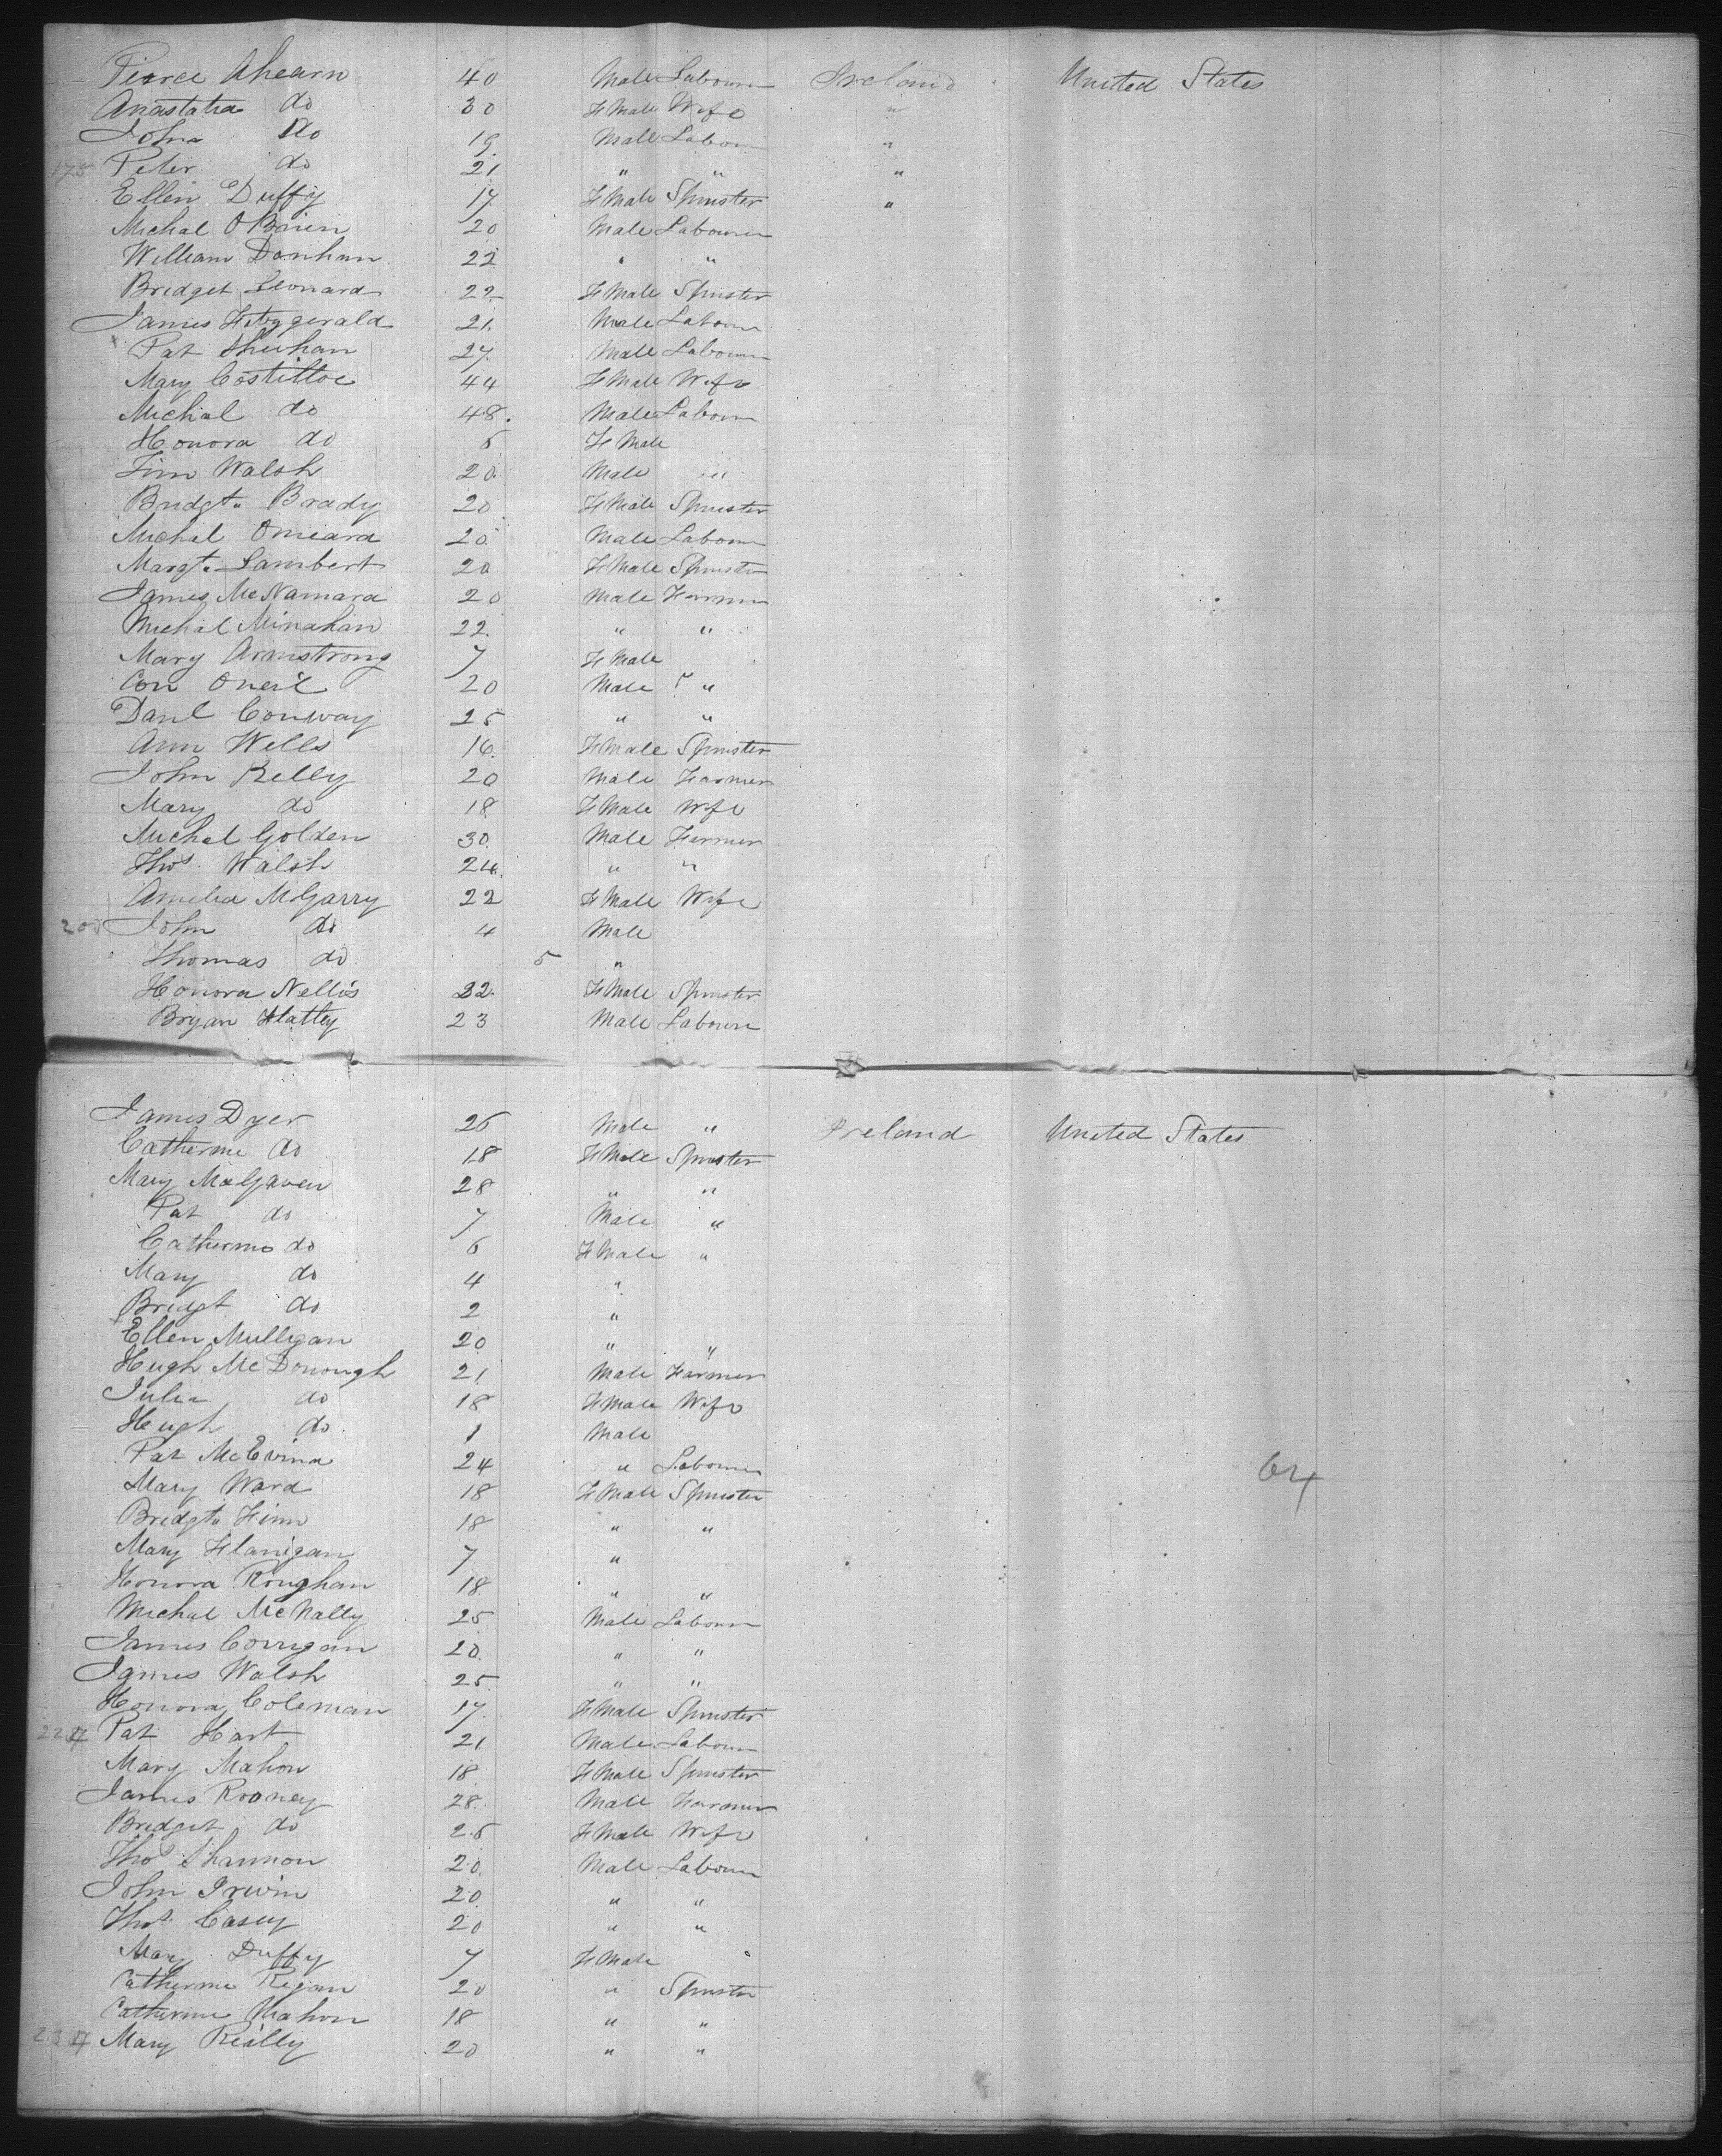 Pierce Ahearn 40 Male Labourer Ireland United States
Anastatia do 30 FMale Wife "
John do 19 Male Labour "
175 Peter do 21 " " "
Ellen Duffy 17 FMale Spinster "
Michal OBrien 20 Male Labourer
William Danhan 22 " "
Bridget Leonard 22 FMale Spinster
James Fitzgerald 21 Male Labour
Pat Shuhan 27 Male Labour
Mary Costilloe 44 FMale Wife
Michal do 48 Male Labour
Honora do 5 FMale
Tim Walsh 20 Male "
Bridgt. Brady 20 FMale Spinster
Michal Omeara 20 Male Labour
Margt. Lambert 20 FMale Spinster
James McNamara 20 Male Farmer
Michal Minahan 22 " "
Mary Armstrong 7 FMale
Con Oneil 20 Male "
Danl Conway 25 " "
Ann Wells 16 FMale Spinster
John Kelly 20 Male Farmer
Mary do 18 FMale Wife
Michal Golden 30 Male Farmer
Thos. Walsh 24 " "
Amelia McGarry 22 FMale Wife
200 John do 4 Male
Thomas do 5 "
Honora Nellis 22 FMale Spinster
Bryan Flatley 23 Male Labour
James Dyer 26 Male " Ireland United States
Catherine do 18 FMale Spinster
Mary McGaven 28 " "
Pat do 7 Male "
Catherine do 6 FMale "
Mary do 4 "
Bridgt do 2 "
Ellen Mulligan 20 " "
Hugh McDonough 21 Male Farmer
Julia do 18 FMale Wife
Hugh do 1 Male
Pat McEvina 24 " Labourer
Mary Ward 18 FMale Spinster
Bridgt. Finn 18 " "
Mary Flanigan 7 "
Honora Roughan 18 " "
Michal McNally 25 Male Labour
James Corrigan 20 " "
James Walsh 25 " "
Honora Coleman 17 FMale Spinster
Pat Hart 21 Male Labour
Mary Mahon 18 FMale Spinster
James Rooney 28 Male Farmer
Bridget do 25 FMale Wife
Thos Shannon 20 Male Labour
John Irwin 20 " "
Thos. Casey 20 " "
Mary Duffy 7 FMale
Catherine Regan 20 " Spinster
Catherine Mahon 18 " "
Mary Reilly 20 " "